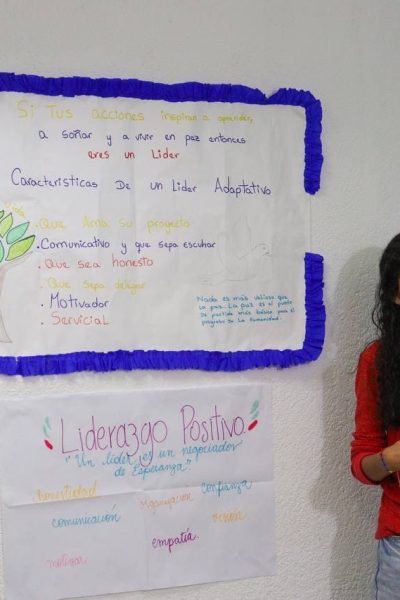 Si Tus acciones inspiran a aprender,
a soñar y a vivir en paz entonces
eres un Lider
Caracteristicas De un Lider Adaptativo
vida
. Que Ama su proyecto
. Comunicativo y que sepa escuhar
. Que sea honesto
. Que sepa delegar
. Motivador
. Servicial
Nada es más valioso que
la paz. La paz es el punto
De partida más básico para el
progreso De La Humanidad.
Liderazgo Positivo.
"Un lider es un negociador
de Esperanza"
honestidad
organización
confianza
comunicación
empatía
motivar